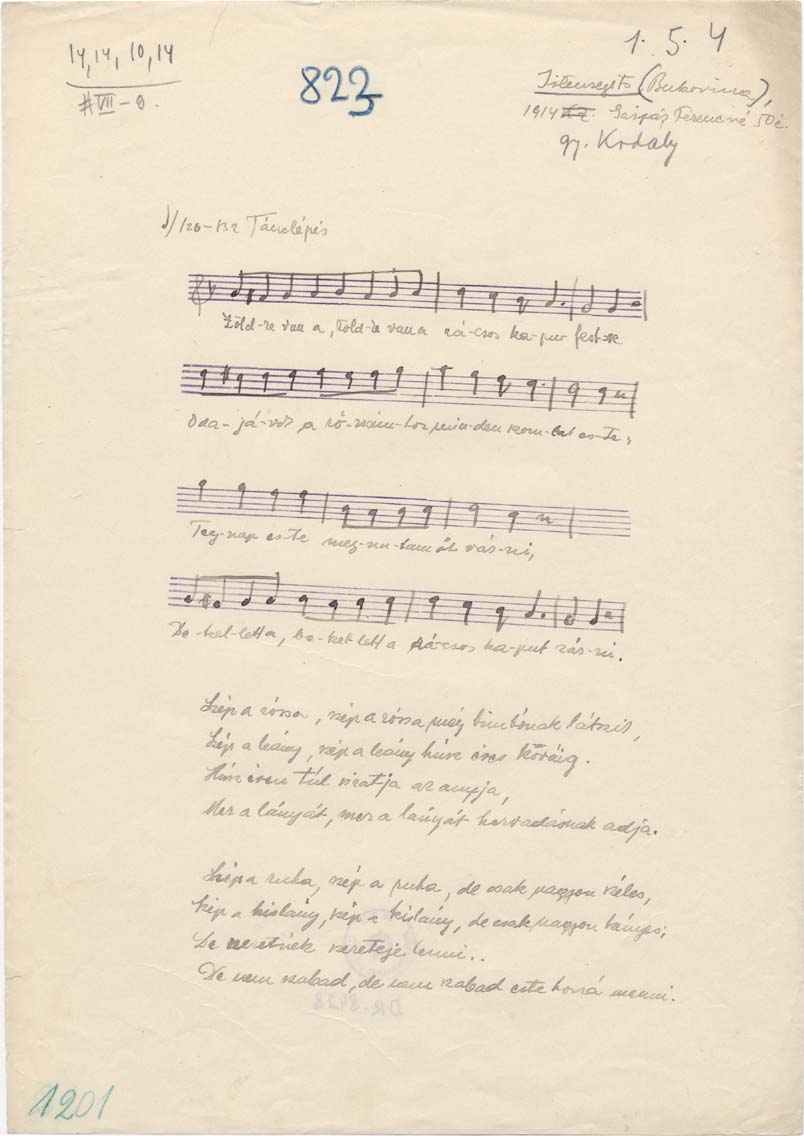 14, 14, 10, 14
#VII – 8.
823
1. 5. 4
Istensegíts (Bukovina),
1914 Gáspás Ferencné 50 é.
gy. Kodály
120–132 Tánclépés
Zöld-re van a, zöld-re van a rá-csos ka-pu fest-ve
Oda-já-rok a ró-zsám-hoz min-den szom-bat es-te,
Teg-nap es-te meg-un-tam őt vár-ni,
Be kel-lett a, be kel-lett a rá-csos ka-put zár-ni.
Szép a rózsa, szép a rózsa még bimbónak látszik,
Szép a leány, szép a leány húsz éves koráig.
Húsz éven túl siratja az annyja,
Mer a lányát, mer a lányát hervadásnak adja.
Szép a ruha, szép a ruha, de csak nagyon kéles,
Szép a kislány, szép a kislány, de csak nagyon kényes;
De szeretnék szeretője lenni..
De nem szabad, de nem szabad este hozzá menni.
DR-8428
1201